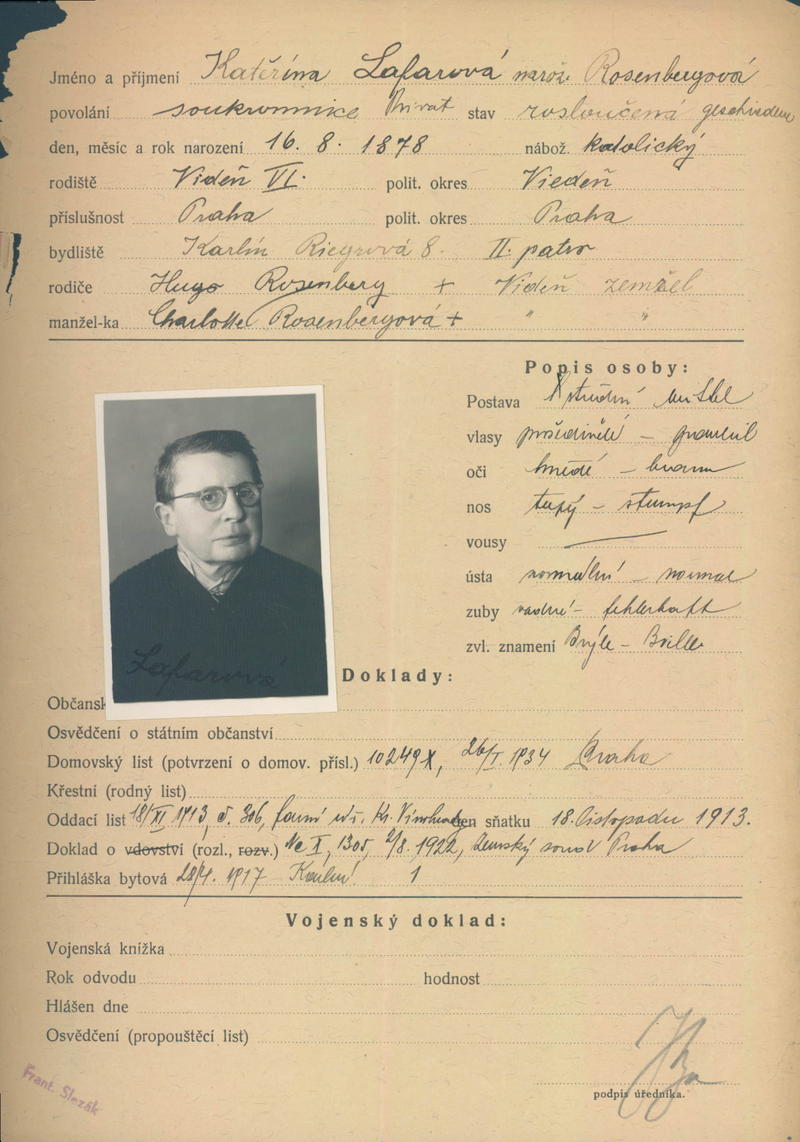 Jméno a příjmení Katěrina Lafarová narož. Rosenbergová
povolání soukromnice Privat stav rosloučená geschieden
den, měsíc a rok narození 16. 8. 1878 nábož. katolický
rodiště Videň VI. polit. okres Viedeň
příslušnost Praha polit. okres Praha
bydliště Karlín Riegrová 8. II. patro
rodiče Hugo Rosenberg + Videň zemřel
manžel-ka Charlotte Rosenbergová + " "
Popis osoby:
Postava střední mittel
vlasy prošedivělé –
oči hnědé – braun
nos tupý – stumpf
vousy —
ústa normální – normal
zuby vadné – fehlerhaft
zvl. znamení Brýle – Brille
Lafarová
Doklady:
Občansk
Osvědčení o státním občanství
Domovský list (potvrzení o domov. přísl.) 10249X, 26/I 1934 Praha
Křestní (rodný list)
Oddací list 18/XI 1913, č. 306, farní den sňatku 18. listopadu 1913.
Doklad o vdovství (rozl., rozv.) Nc X, 1305, 8. 1922, Zemský soud Praha
Přihláška bytová 28/4. 1917 Karlín 1
Vojenský doklad:
Vojenská knížka
Rok odvodu hodnost
Hlášen dne
Osvědčení (propouštěcí list)
podpis úředníka.
Frant. Slezák